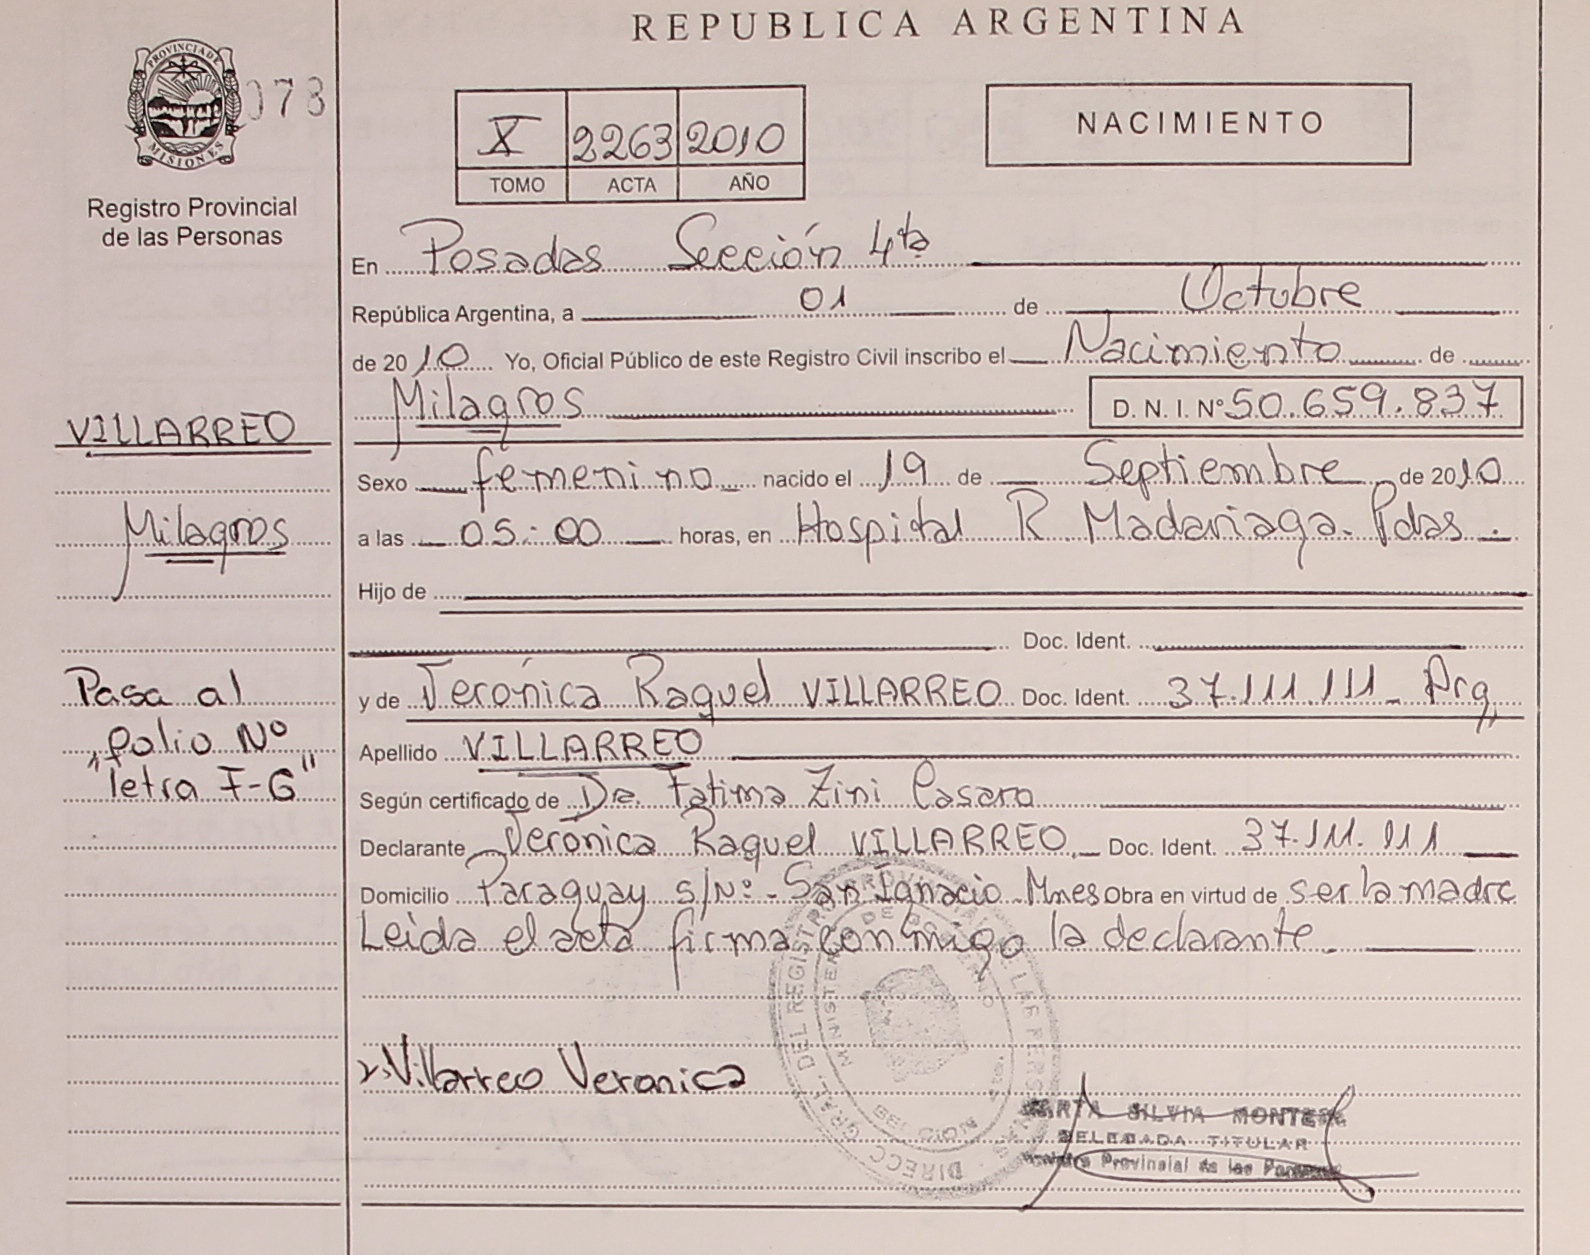 REPUBLICA ARGENTINA
PROVINCIA DE
MISIONES
078
Registro Provincial
de las Personas
X 2263 2010
TOMO ACTA AÑO
NACIMIENTO
En Posadas Sección 4ta
República Argentina, a 01 de Octubre
de 2010 Yo, Oficial Público de este Registro Civil inscribo el Nacimiento de
Milagros D. N. I. Nº 50.659.837
VILLARREO
Sexo femenino nacido el 19 de Septiembre de 2010
Milagros
a las 05:00 horas, en Hospital R Madariaga. Pdas.
Hijo de
Doc. Ident.
Pasa al
y de Verónica Raquel VILLARREO Doc. Ident. 37.111.111 - Arg,,
folio Nº
Apellido VILLARREO
"letra F-G"
Según certificado de Dra. Fatima Zini Casaro
Declarante Verónica Raquel VILLARREO Doc. Ident. 37.111.111
Domicilio Paraguay s/Nº - San Ignacio Mnes Obra en virtud de ser la madre
Leida el acta firma conmigo la declarante.
DIRECC. GRAL. DEL REGISTRO PROVINCIAL DE LAS PERSONAS
MINISTERIO DE GOBIERNO
Villarreo Veronica
SILVIA
DELEGADA TITULAR
Provincial de las Personas